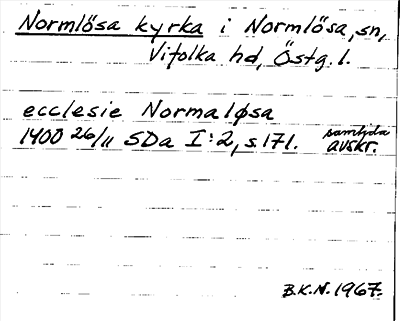 Normlösa kyrka i Normlösa, sn,
Vifolka hd, Östg. l.
ecclesie Normaløsa
1400 26/11 SDa I:2, s 171. samtida avskr.
B.K.N. 1967.